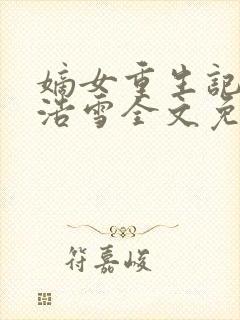 嫡女重生記
浩雪全文免
符嘉峻